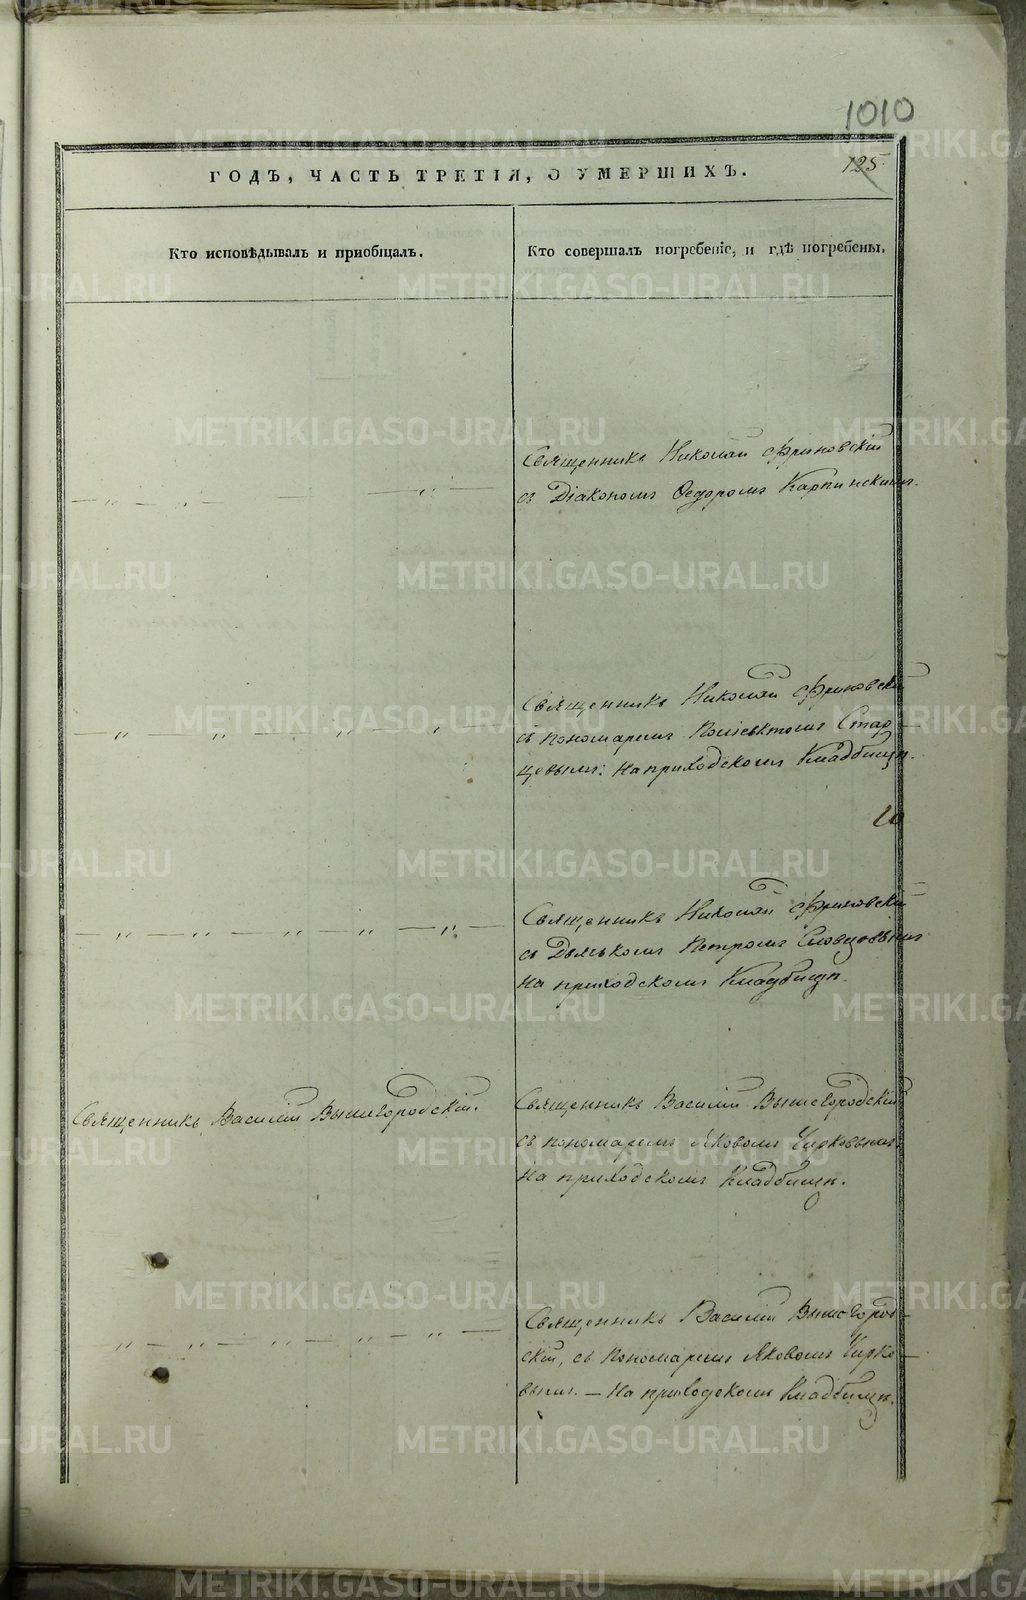 1010
125
ГОДЪ, ЧАСТЬ ТРЕТІЯ, О УМЕРШИХЪ.
Кто исповѣдывалъ и пріобщалъ.
Кто совершалъ погребеніе, и гдѣ погребены.
Священникъ Николай Фриновскій
съ Діакономъ Ѳедоромъ Карпинскимъ.
Священникъ Николай Фриновскій
съ пономаремъ Поліевктомъ Стар
цевымъ: на приходскомъ Кладбищѣ.
10
Священникъ Николай Фриновскій
съ Дьячкомъ Петромъ Словцовымъ
на приходскомъ Кладбищѣ.
Священникъ Василій Вышегородскій.
Священникъ Василій Вышегородскій
съ пономаремъ Яковомъ Чирковымъ.
на приходскомъ Кладбищѣ.
Священникъ Василій Вышегород-
скій, съ Пономаремъ Яковомъ Чирко-
вымъ. — На приходскомъ Кладбищѣ.
METRIKI.GASO-URAL.RU